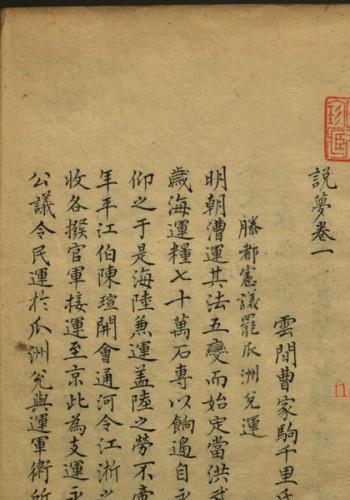 說夢卷一
雲間曹家駒千里氏
滕都憲議罷瓜洲兌運
明朝漕運其法五變而始定當洪武
歲海運糧七十萬石專以餉邊自永
仰之于是海陸兼運蓋陸之勞不啻
年平江伯陳瑄開會通河令江浙之
收各撥官軍接運至京此為支運永
公議令民運於瓜洲兌與運軍衛所